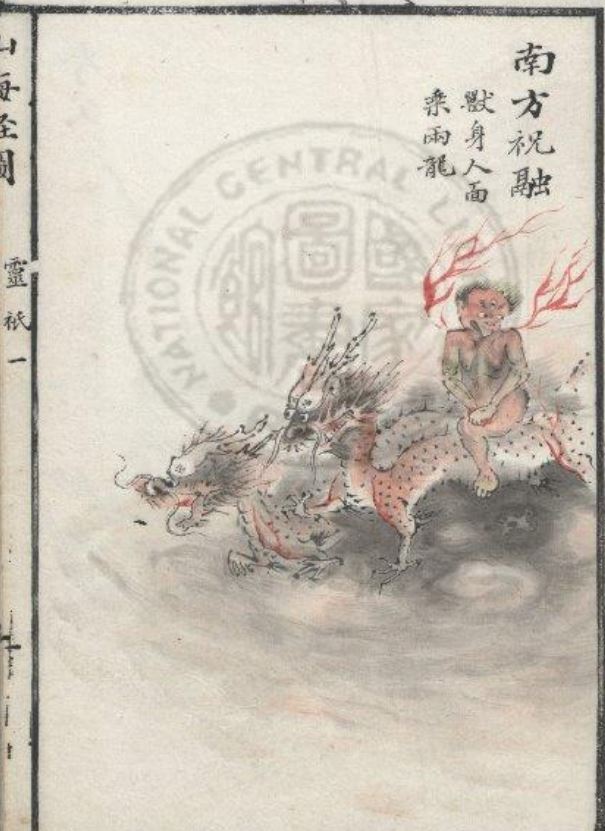 南方祝融
獸身人面
乘兩龍
山海經圖
靈祇一
NATIONAL CENTRAL
國家圖書館